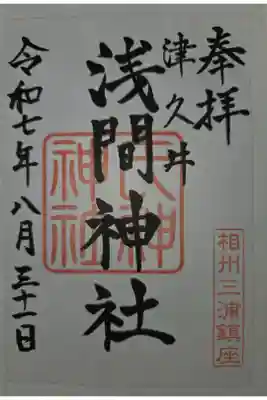 奉拝
津久井
浅間神社
令和七年八月三十一日
相州三浦鎮座